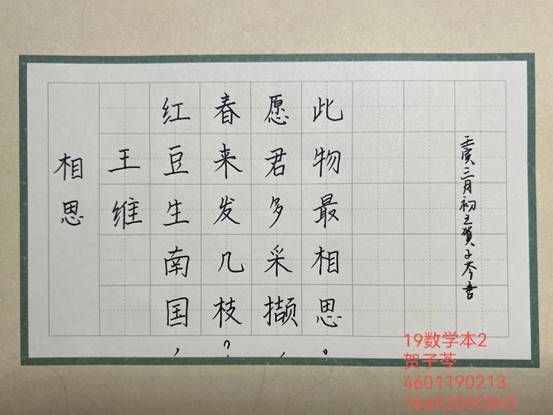 相思
王维
红豆生南国，
春来发几枝？
愿君多采撷，
此物最相思。
壬寅三月初五贺子芩书
19数学本2
贺子芩
4601190213
18692050345